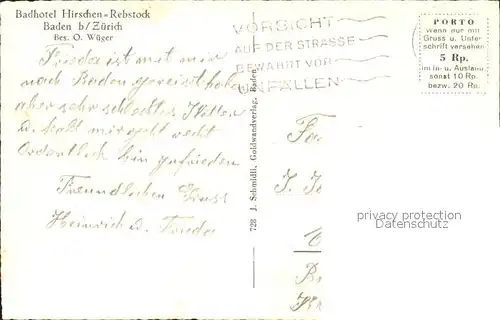 Badhotel Hirschen=Rebstock
Baden b/Zürich
Bes. O. Wüger
VORSICHT
AUF DER STRASSE
BEWAHRT VOR
UNFÄLLEN
PORTO
wenn nur mit
Gruss u. Unter-
schrift versehen
5 Rp.
im In- u. Ausland
sonst 10 Rp.
bezw. 20 Rp.
Frieda ist mit mir
nach Baden gereist haben
aber sehr schlechtes Wetter
u. kalt mir geht recht
Ordentlich bin zufrieden
Freundlichen Gruss
Heinrich u. Frieda
728 J. Schmidli, Goldwandverlag, Baden
privacy protection
Datenschutz